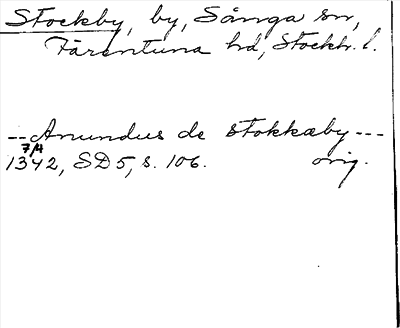 Stockby, by, Sånga sn,
Färentuna hd, Stockh. l.
-- Anundus de stokkæby ---
7/4
1342, SD 5, s. 106. orig.